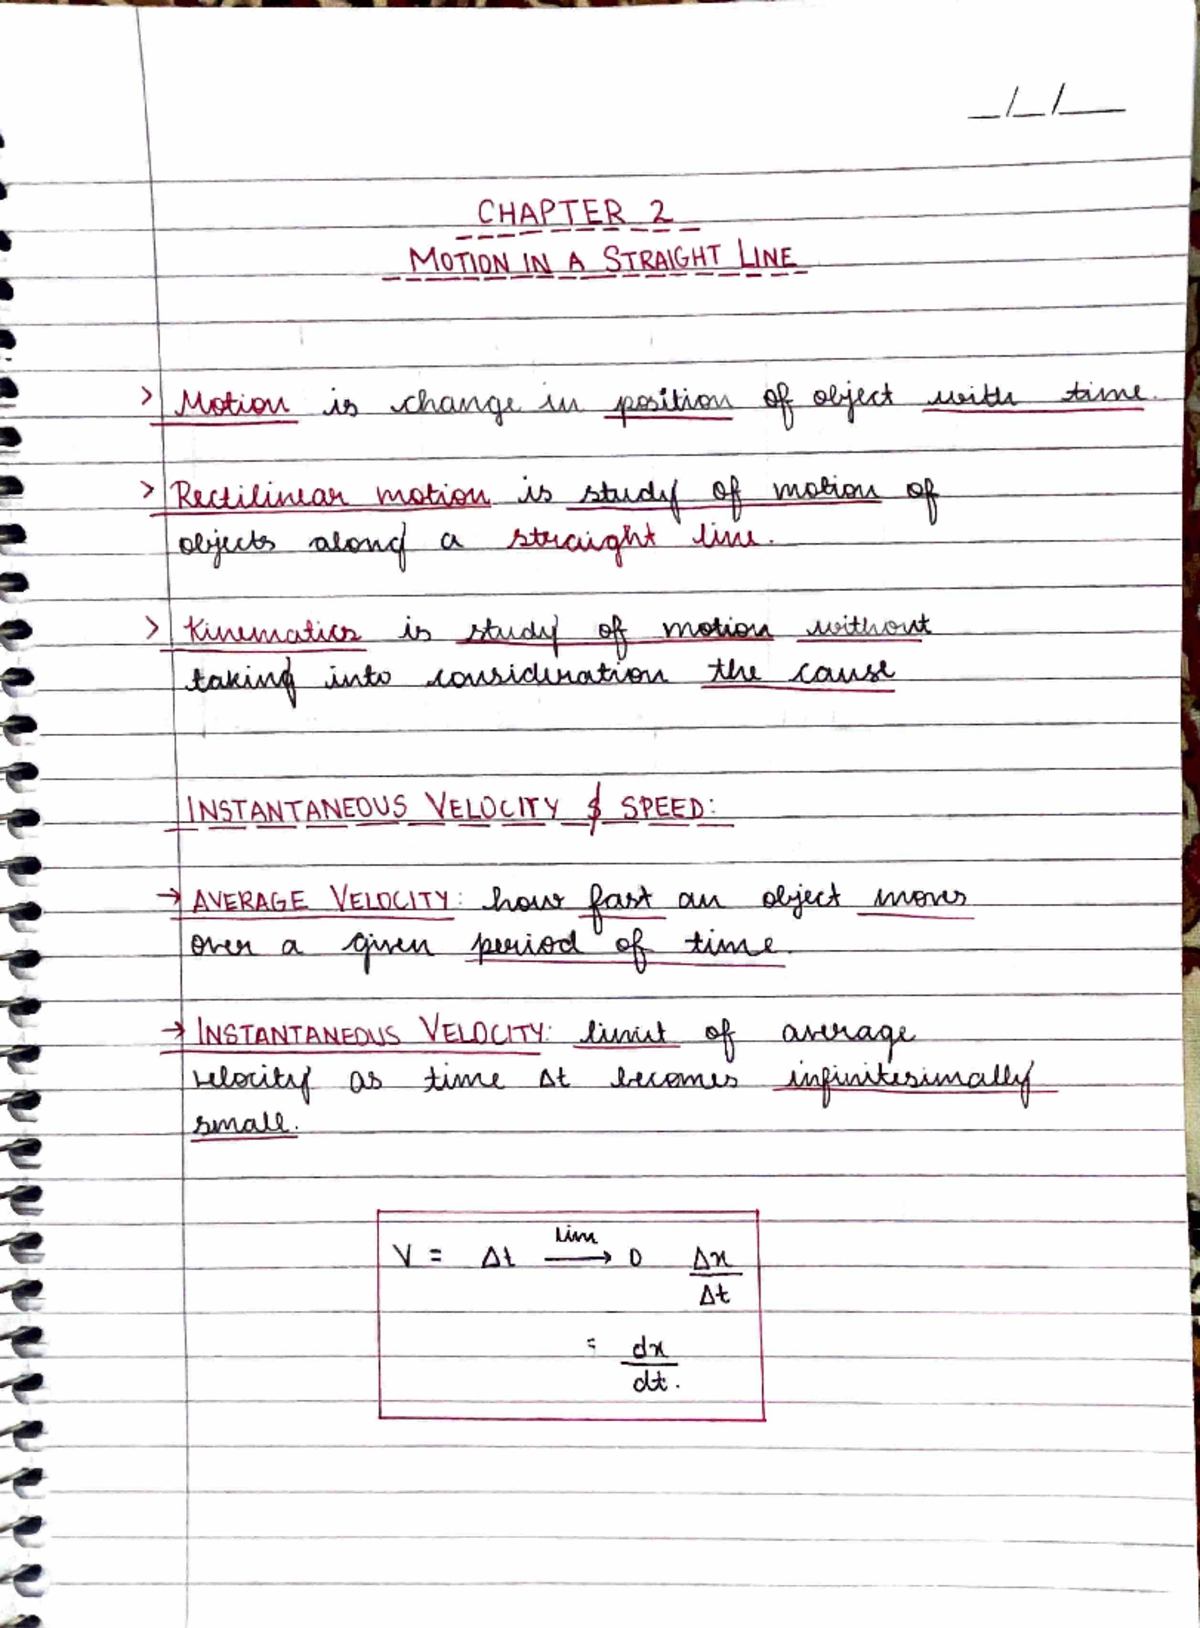 _/_/__
CHAPTER 2
MOTION IN A STRAIGHT LINE
> Motion is change in position of object with time.
> Rectilinear motion is study of motion of
objects along a straight line.
> Kinematics is study of motion without
taking into consideration the cause
INSTANTANEOUS VELOCITY & SPEED:
→ AVERAGE VELOCITY: how fast an object moves
over a given period of time.
→ INSTANTANEOUS VELOCITY: limit of average
velocity as time Δt becomes infinitesimally
small.
lim
V = Δt → 0 Δx/Δt
= dx/dt.